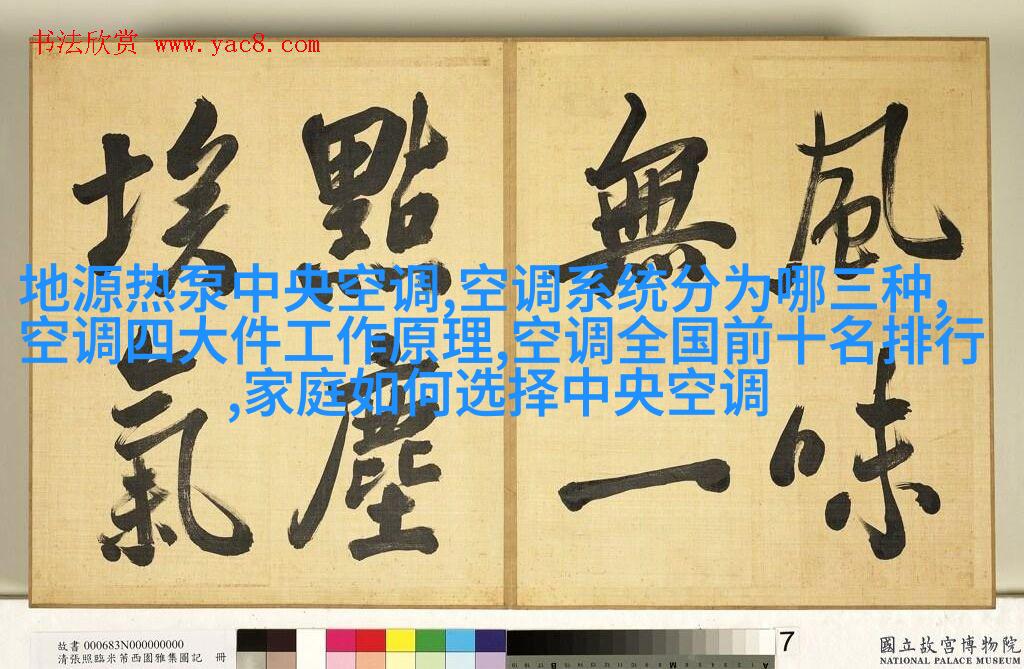 书法欣赏 www.yac8.com
風味
無一
點塵
埃氣
地源热泵中央空调,空调系统分为哪三种,
空调四大件工作原理,空调全国前十名排行
,家庭如何选择中央空调
故書 000683N000000000
清張照臨米芾西園雅集圖記 冊
7
國立故宮博物院
NATIONAL PALACE MUSEUM